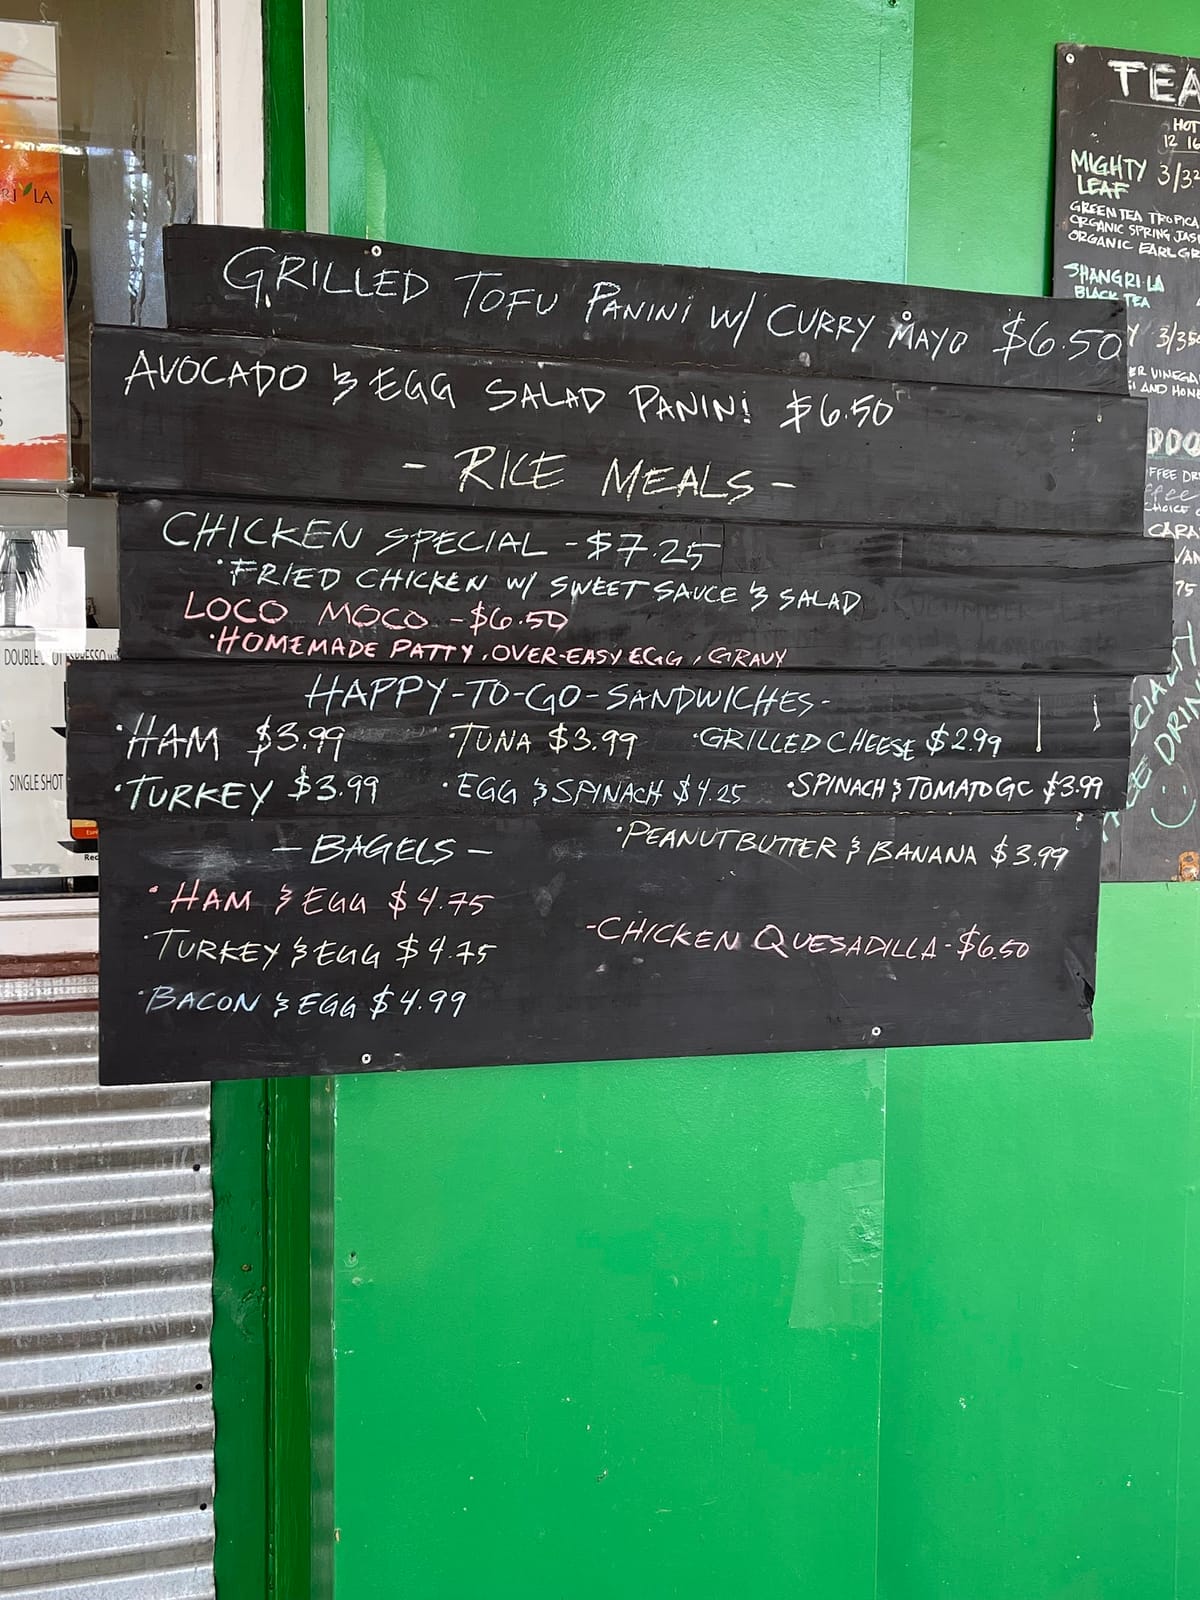 GRILLED TOFU PANINI W/ CURRY MAYO $6.50
AVOCADO & EGG SALAD PANINI $6.50
- RICE MEALS -
CHICKEN SPECIAL - $7.25
• FRIED CHICKEN W/ SWEET SAUCE & SALAD
LOCO MOCO - $6.50
• HOMEMADE PATTY, OVER-EASY EGG, GRAVY
HAPPY-TO-GO-SANDWICHES-
• HAM $3.99 • TUNA $3.99 • GRILLED CHEESE $2.99
• TURKEY $3.99 • EGG & SPINACH $4.25 • SPINACH & TOMATO GC $3.99
• PEANUTBUTTER & BANANA $3.99
- BAGELS -
• HAM & EGG $4.75
• TURKEY & EGG $4.75
• BACON & EGG $4.99
- CHICKEN QUESADILLA - $6.50
TEA
HOT
12 16
MIGHTY LEAF 3/3
GREEN TEA TROPICA
ORGANIC SPRING JAS
ORGANIC EARL GR
SHANGRI-LA
BLACK TEA
3/35
VINEGA
AND HONE
CARA
VAN
75
DRIN
LA
DOUBLE
SINGLE SHOT